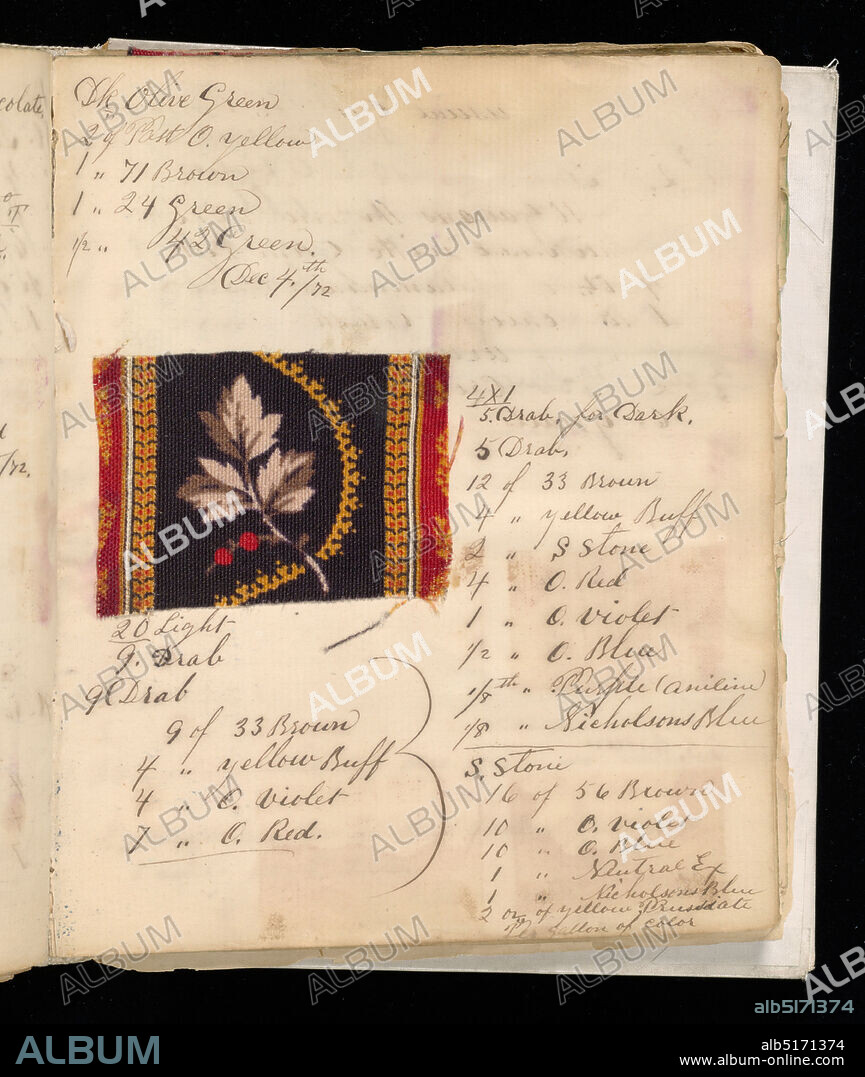 Dk Olive Green
2 of Post O. Yellow
1 " 71 Brown
1 " 24 Green
1/2 " 42 Green.
Dec 4.th/72
4X1
5. Drab, for Dark.
5 Drab,
12 of 33 Brown
4 " yellow Buff
2 " S Stone
4 " O. Red
1 " O. Violet
1/2 " O. Blue
1/8th " Purple (aniline)
1/8 " Nicholsons Blue
S. Stone
16 of 56 Brown
10 " O. Violet
10 " O. Blue
1 " Neutral Ex
1 " Nicholsons Blue
2 oz of yellow Prussiate
gallon of color
20 Light
9. Drab
9 Drab
9 of 33 Brown
4 " yellow Buff
4 " O. Violet
7 " O. Red.
colate
/72.
ALBUM
alb5171374
ALBUM
alb5171374
www.album-online.com